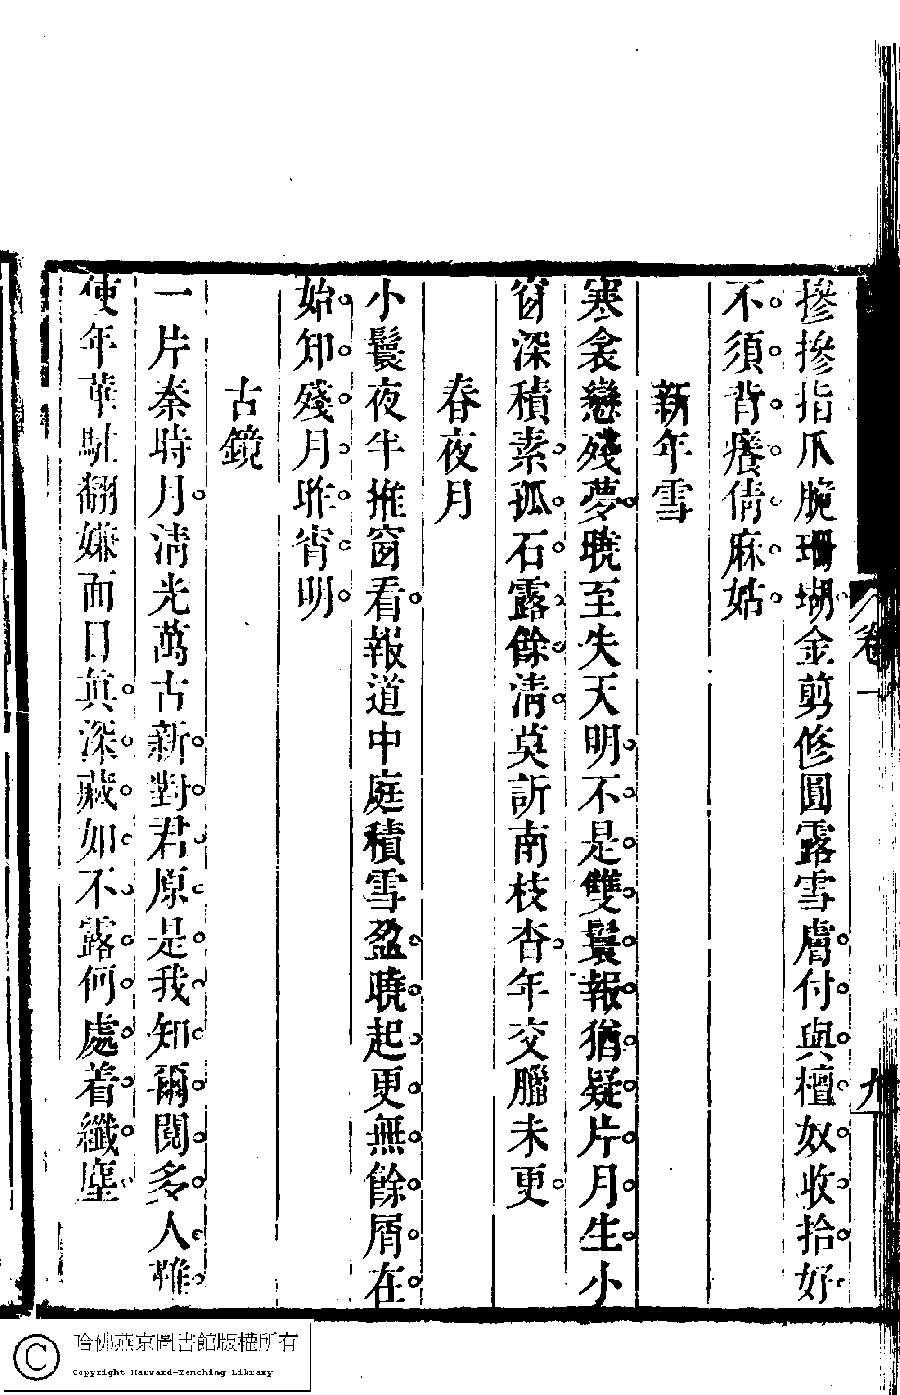 卷一
九
摻摻指爪脆珊瑚金剪修圓露雪膚付與檀奴收拾好
不須背癢倩麻姑
新年雪
寒衾戀殘夢曉至失天明不是雙鬟報猶疑片月生小
窗深積素孤石露餘清莫訢南枝杳年交臘未更
春夜月
小鬟夜半推窗看報道中庭積雪盈曉起更無餘屑在
始知殘月昨宵明
古鏡
一片秦時月清光萬古新對君原是我知爾閱多人雖
使年華駐翻嫌面目真深藏如不露何處着纖塵
哈佛燕京圖書館版權所有
Copyright Harvard-Yenching Library